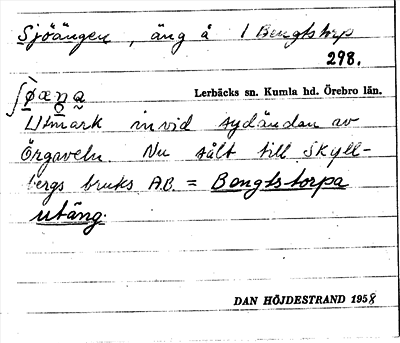 Sjöängen, äng å 1 Bengtstorp
298.
Lerbäcks sn. Kumla hd. Örebro län.
Utmark invid sydändan av
Örgaveln Nu sålt till Skyll-
bergs bruks A.B. = Bengtstorpa
utäng.
DAN HÖJDESTRAND 1958